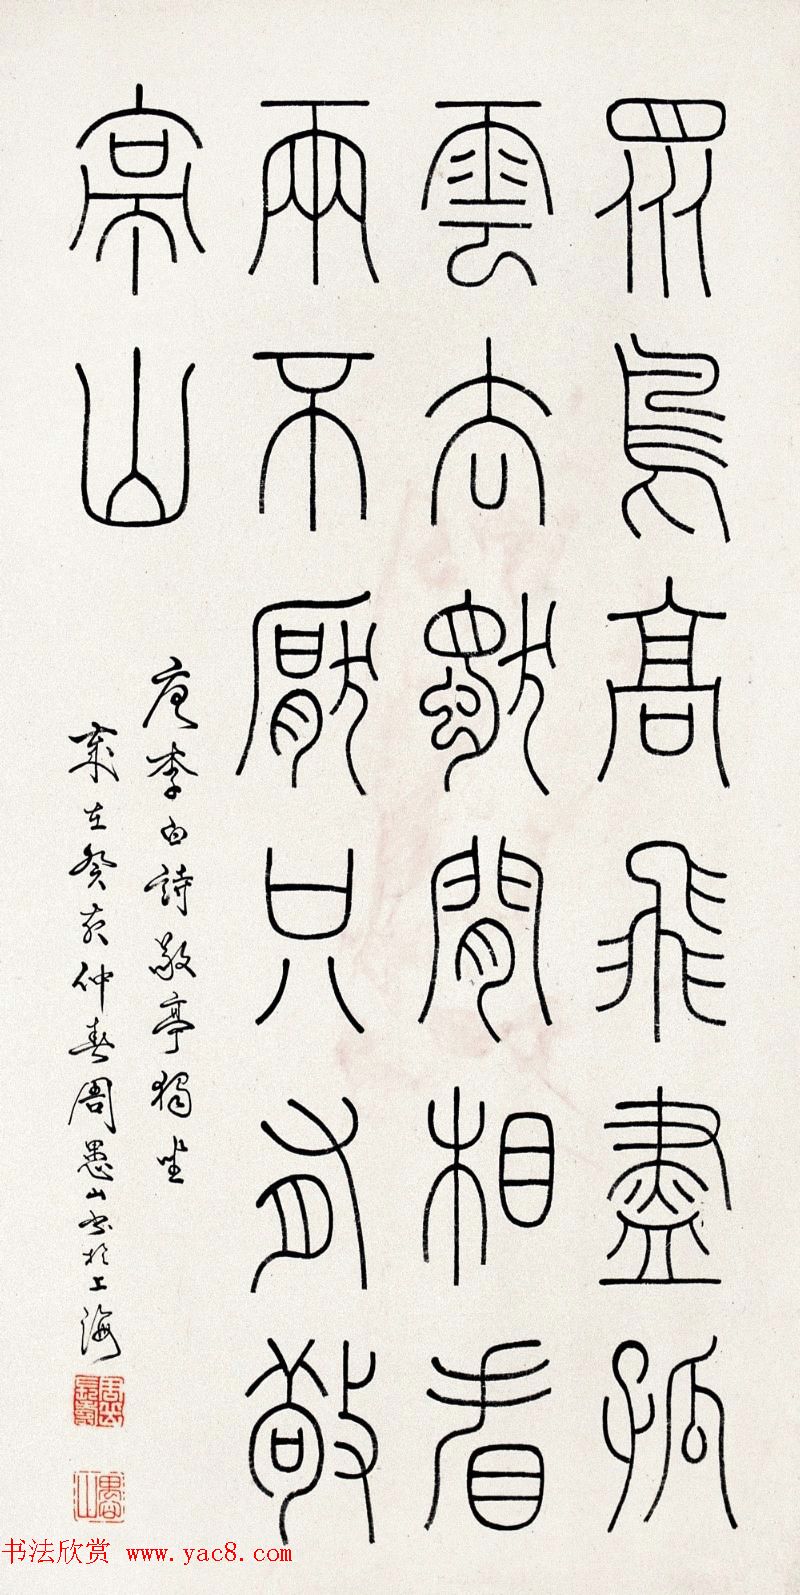 眾鳥高飛盡孤
雲去獨閒相看
兩不厭只有敬
亭山
唐李白詩敬亭獨坐
歲在癸亥仲春周愚山書於上海
愚山
书法欣赏 www.yac8.com